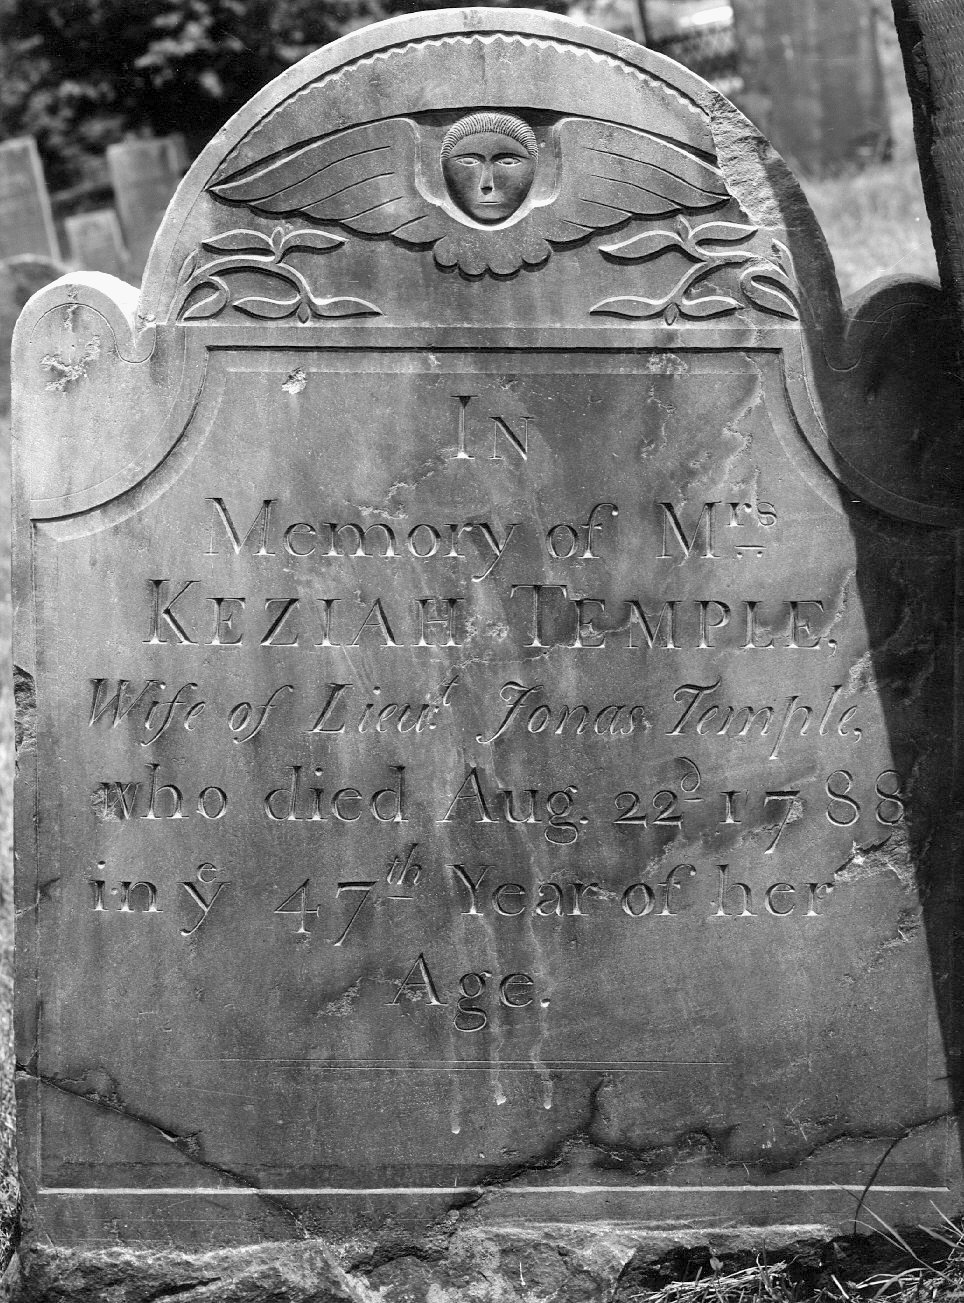 In
Memory of Mrs.
KEZIAH TEMPLE,
Wife of Lieut. Jonas Temple,
who died Aug. 22d. 1788
in ye 47th Year of her
Age.